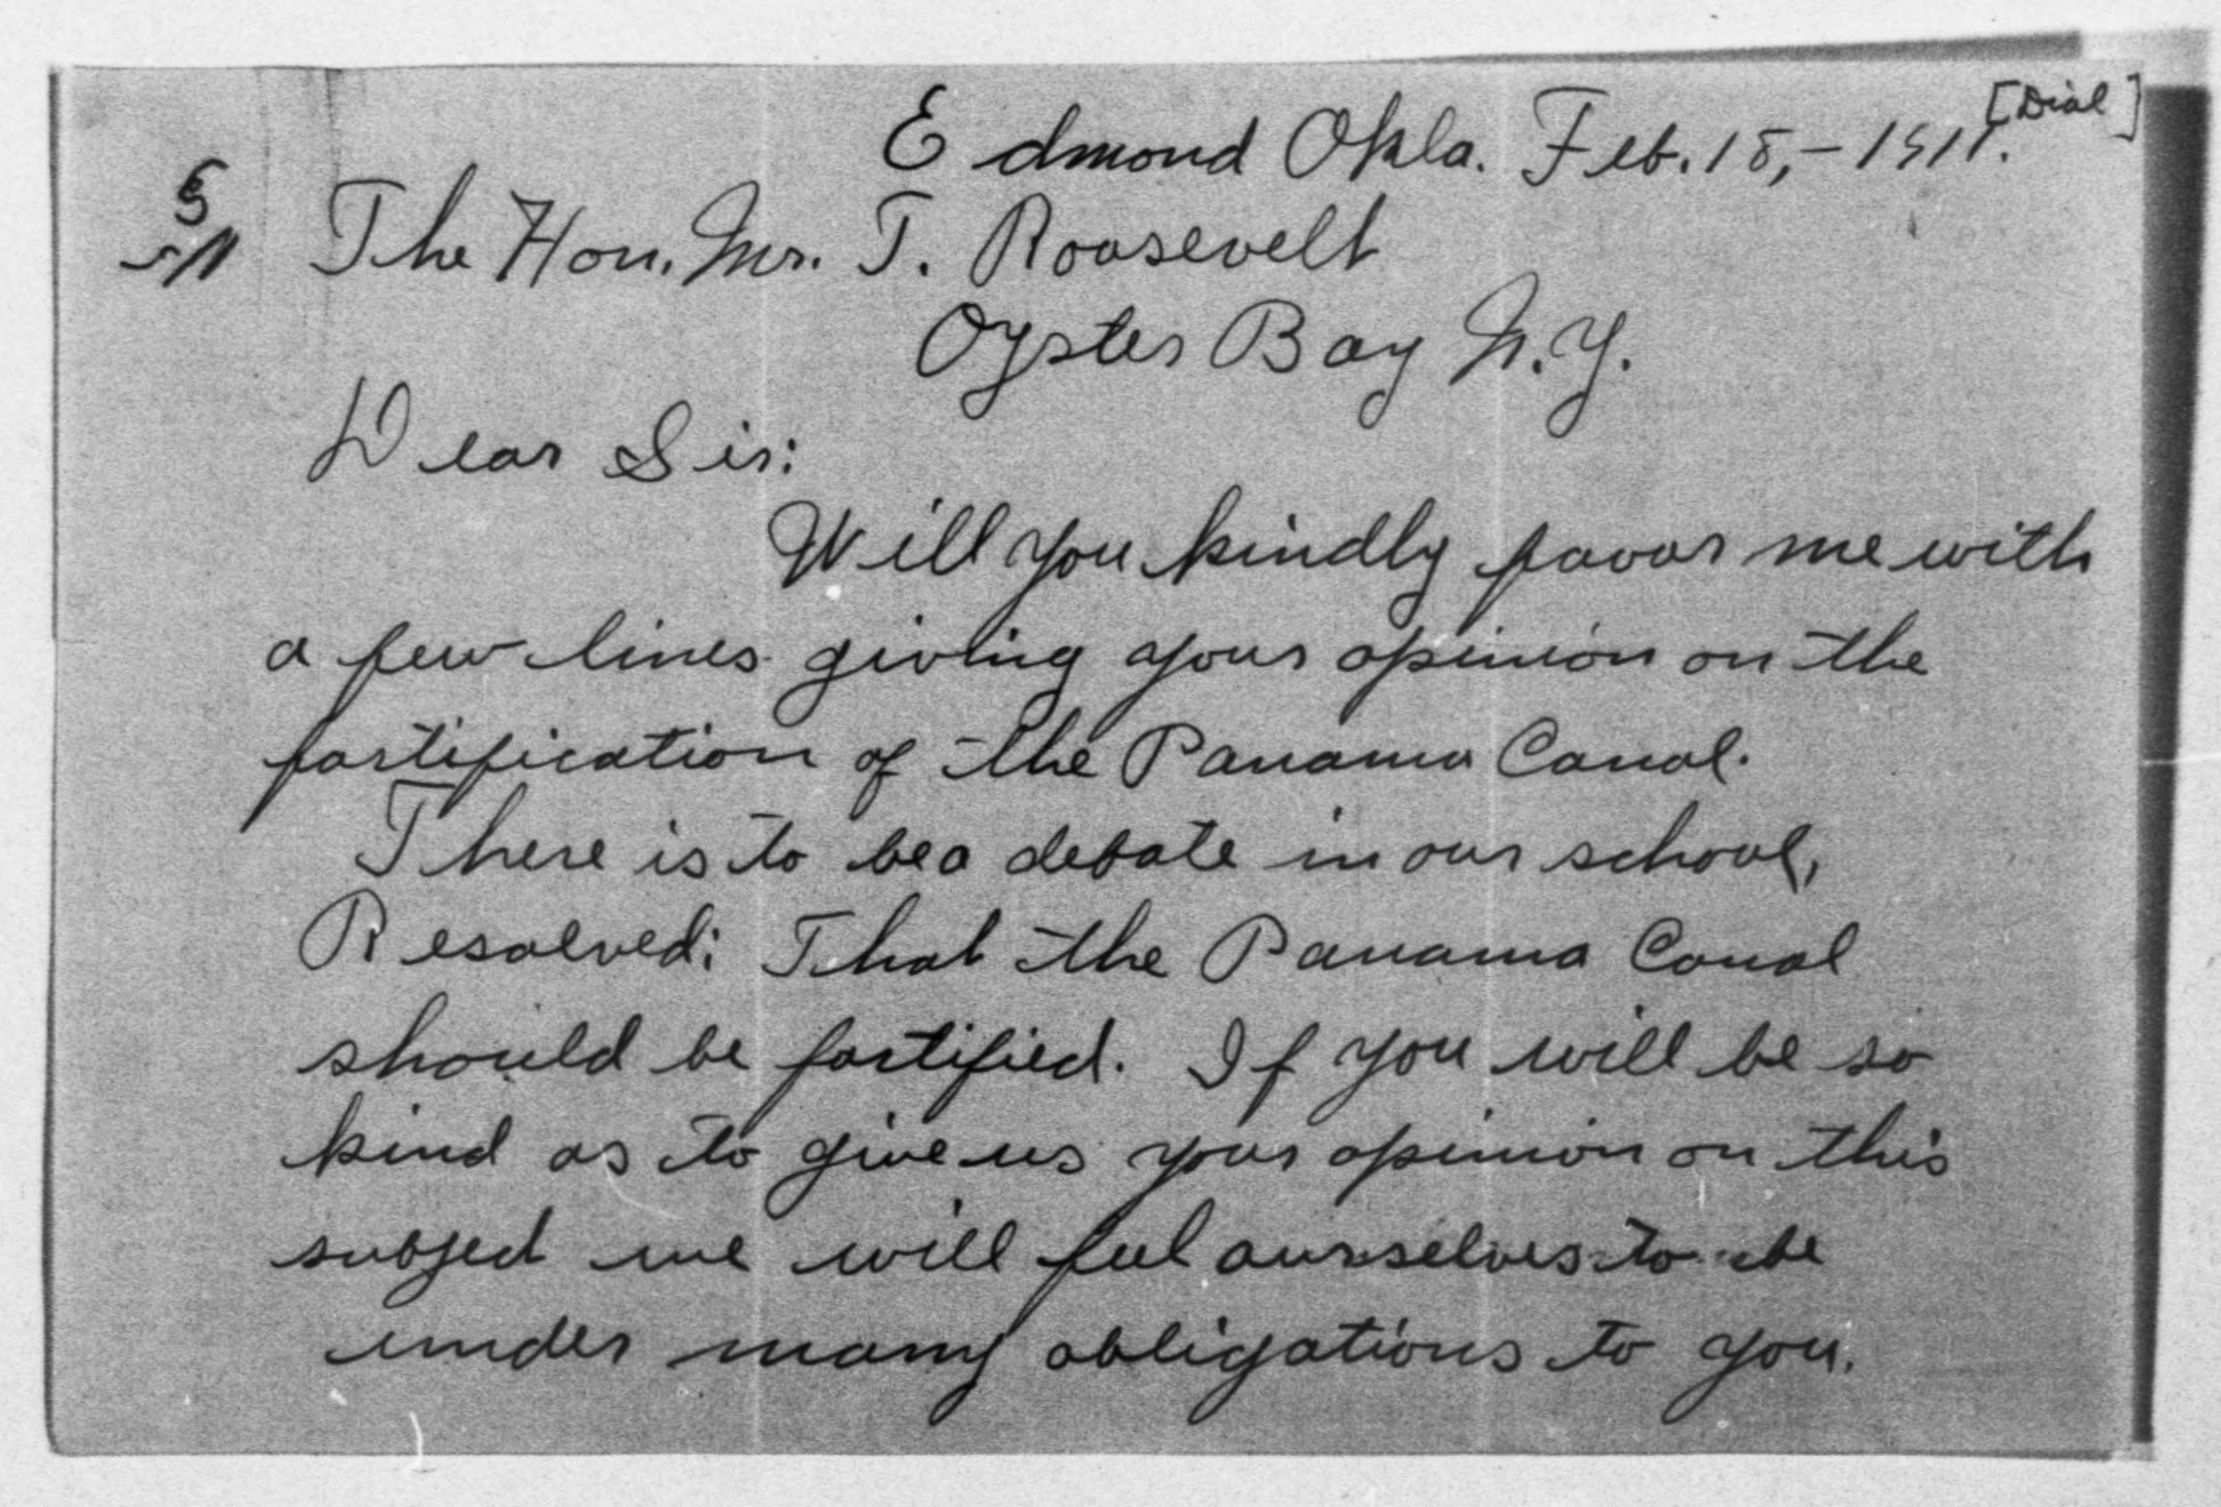 [Dial]
Edmond Okla. Feb. 18,-1911.
The Hon. Mr. T. Roosevelt
Oyster Bay N.Y.
Dear Sir:
Will you kindly favor me with
a few lines giving your opinion on the
fortification of the Panama Canal.
There is to be a debate in our school,
Resolved: That the Panama Canal
should be fortified. If you will be so
kind as to give us your opinion on this
subject we will feel ourselves to be
under many obligations to you.